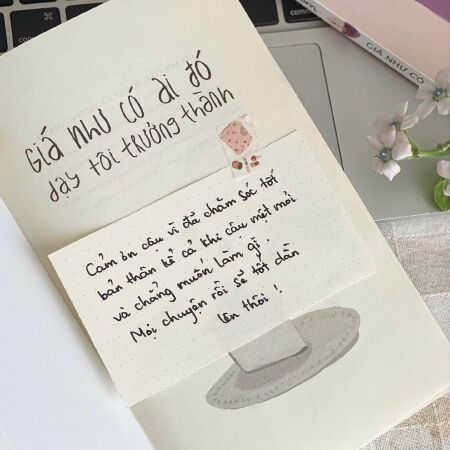 Giá như có ai đó
dạy tôi trưởng thành
Cảm ơn cậu vì đã chăm sóc tốt
bản thân kể cả khi cậu mệt mỏi
và chẳng muốn làm gì.
Mọi chuyện rồi sẽ tốt dần
lên thôi!
GIÁ NHƯ CÓ